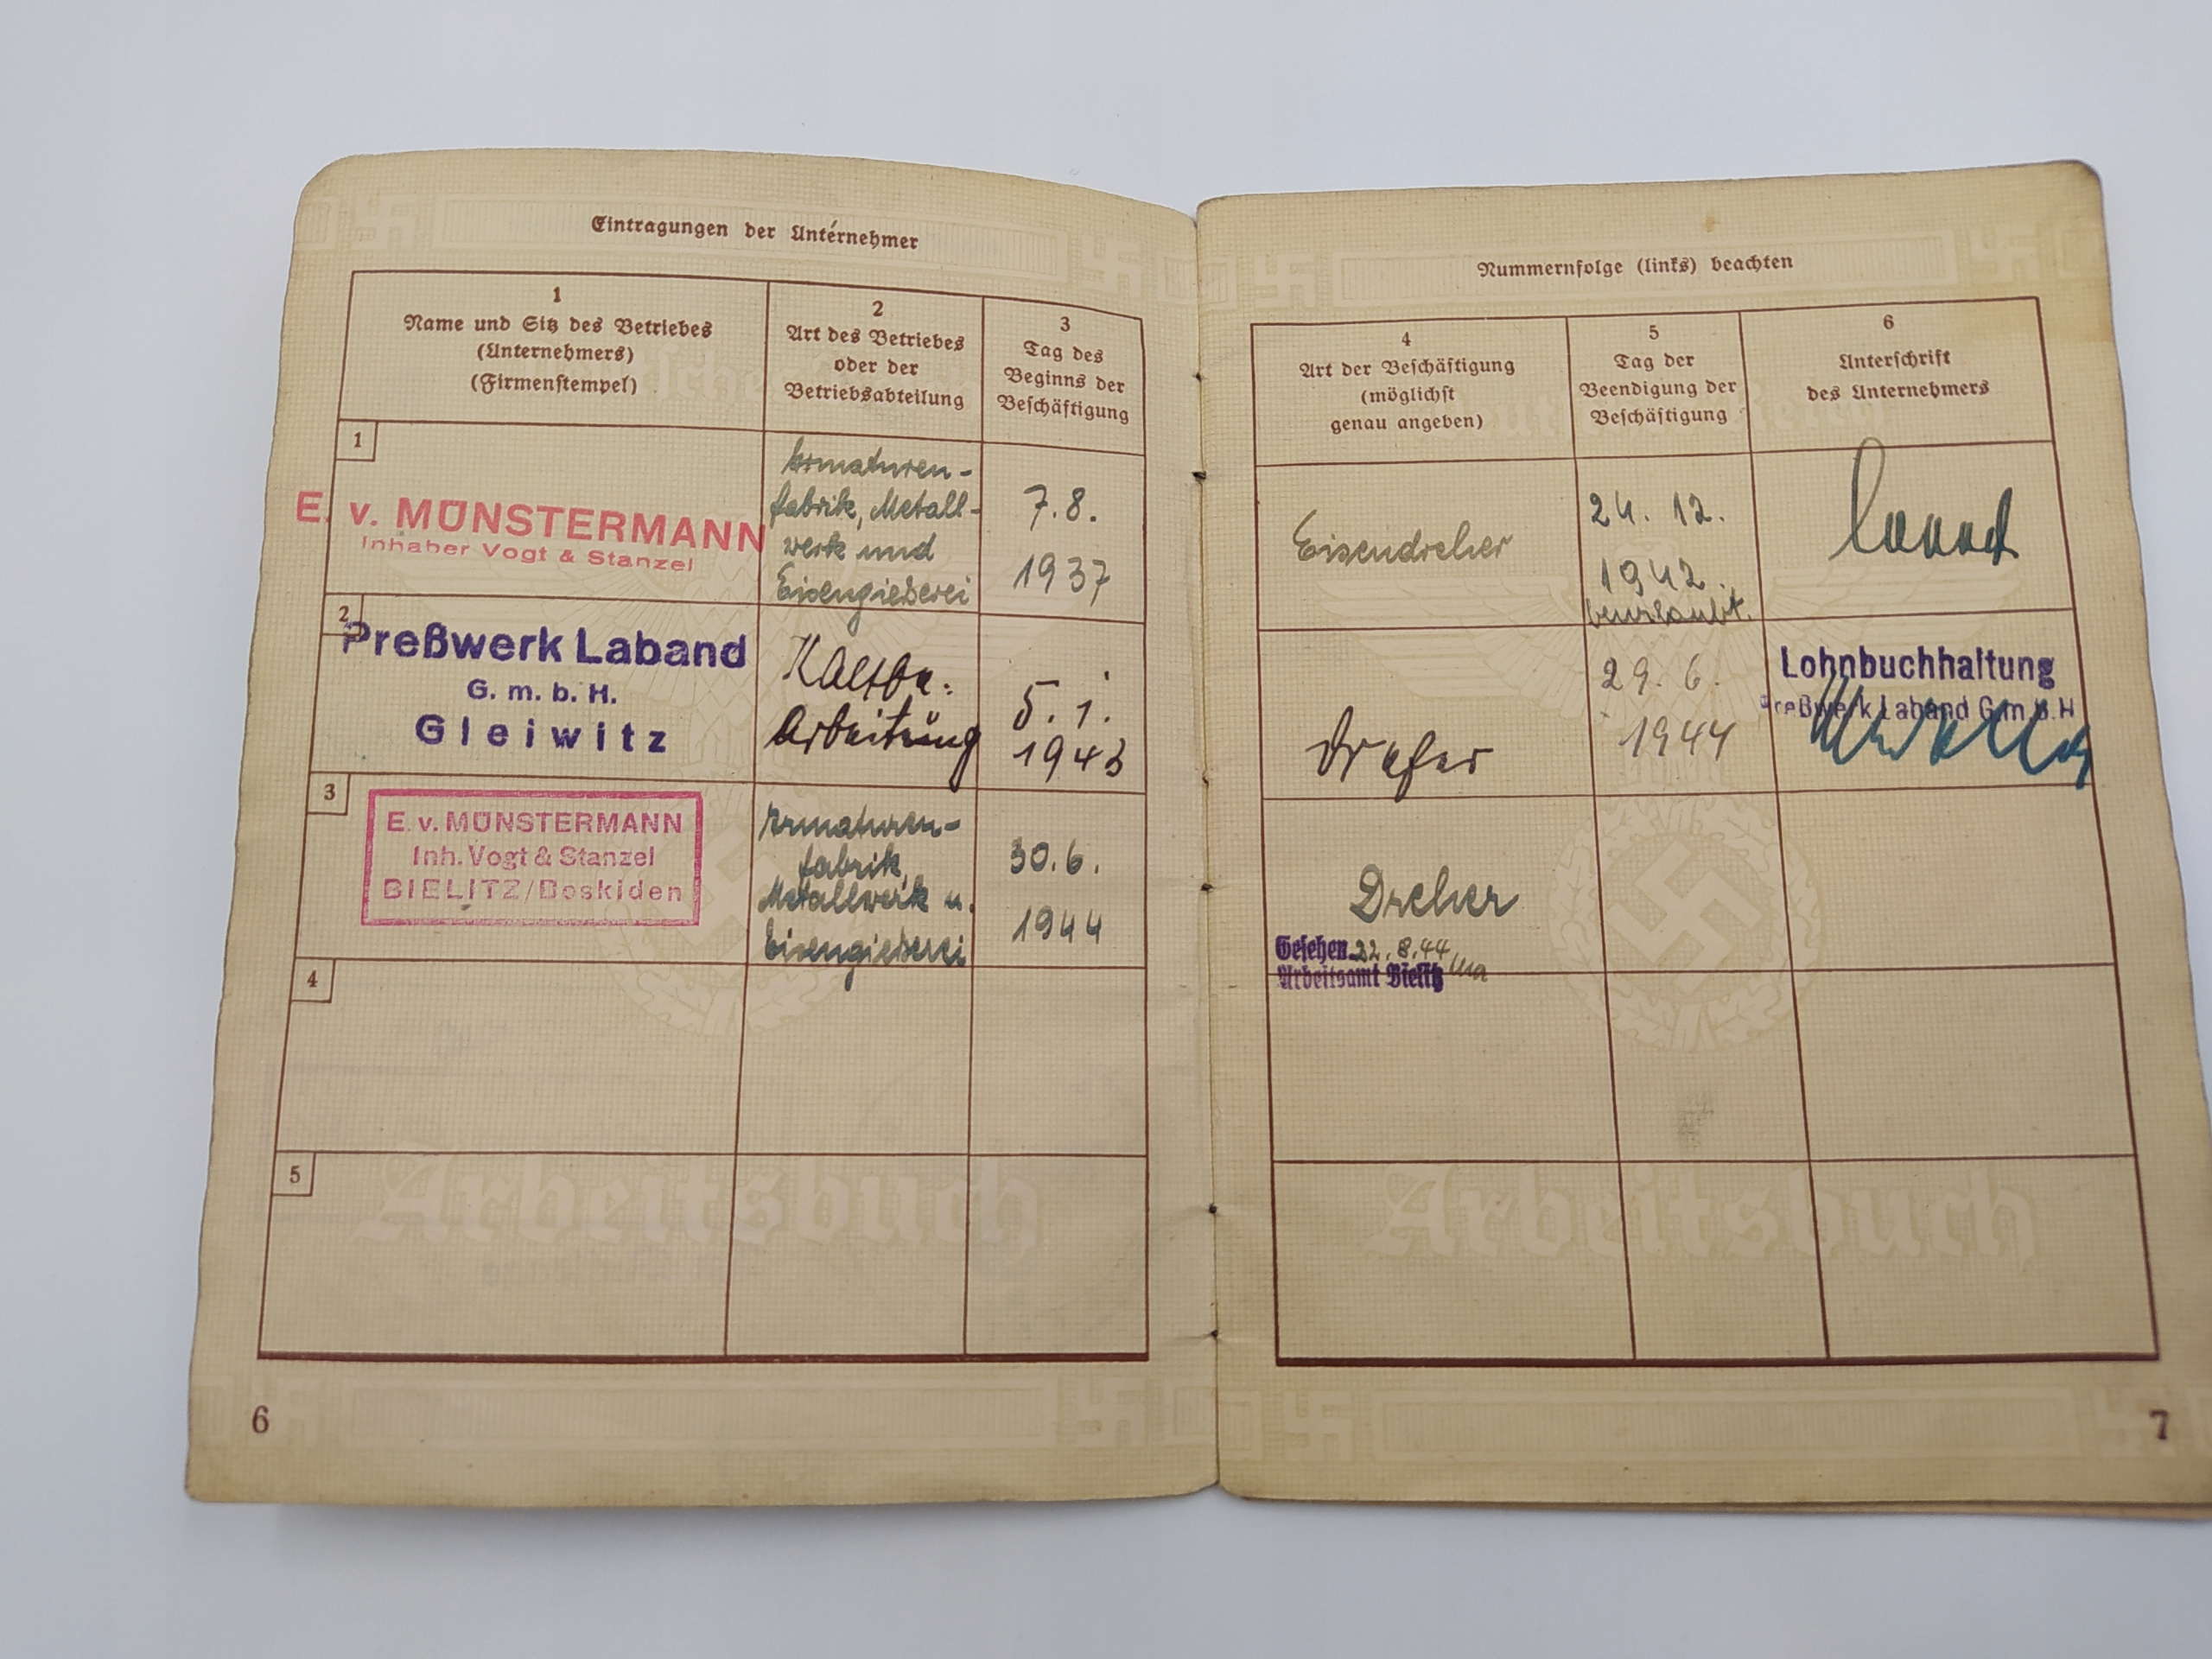 Eintragungen der Unternehmer
1
Name und Sitz des Betriebes
(Unternehmers)
(Firmenstempel)
2
Art des Betriebes
oder der
Betriebsabteilung
3
Tag des
Beginns der
Beschäftigung
1
E. v. MÜNSTERMANN
Inhaber Vogt & Stanzel
Armaturen-
fabrik, Metall-
werk und
Eisengießerei
7.8.
1937
2
Preßwerk Laband
G. m. b. H.
Gleiwitz
Kaltbe-
arbeitung
5. 1.
1943
3
E. v. MÜNSTERMANN
Inh. Vogt & Stanzel
BIELITZ/Beskiden
Armaturen-
fabrik,
Metallwerk u.
Eisengießerei
30.6.
1944
4
5
Arbeitsbuch
6
Nummernfolge (links) beachten
4
Art der Beschäftigung
(möglichst
genau angeben)
5
Tag der
Beendigung der
Beschäftigung
6
Unterschrift
des Unternehmers
Eisendreher
24. 12.
1942.
beurlaubt.
Dreher
29. 6.
1944
Lohnbuchhaltung
Preßwerk Laband G.m.b.H
Dreher
Gesehen 22.8.44
Arbeitsamt Bielitz
Arbeitsbuch
7